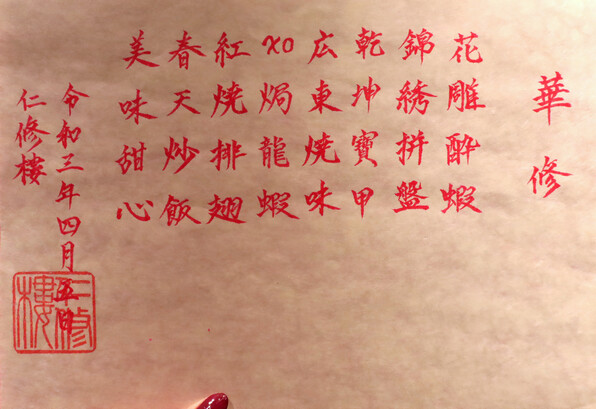 華修
花雕酔蝦
錦綉拼盤
乾坤寶甲
広東焼味
XO焗龍蝦
紅焼排翅
春天炒飯
美味甜心
令和三年四月五日
仁修樓
仁修樓